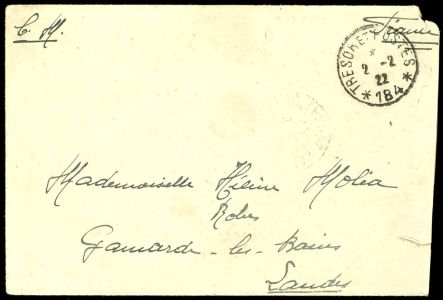 C. M.
France
TRESOR ET POSTES
2 -2
22
* 184 *
Mademoiselle Hélène Moléa
Robes
Gamarde-les-Bains
Landes